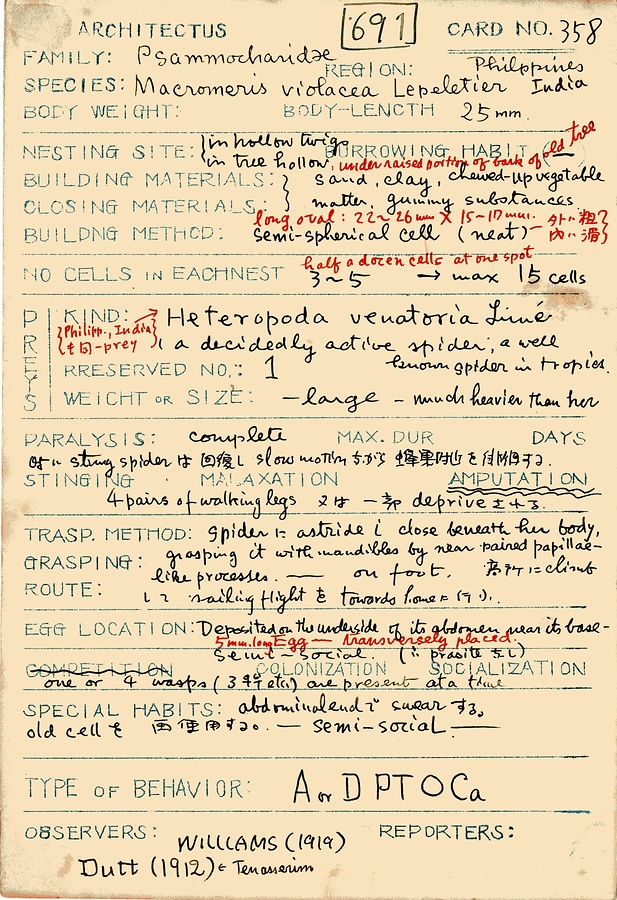 691
ARCHITECTUS CARD NO. 358
FAMILY: Psammocharidae
REGION: Philippines
SPECIES: Macromeris violacea Lepeletier India
BODY WEIGHT: BODY-LENGTH 25 mm.
NESTING SITE: {in hollow twigs BURROWING HABIT (—
in tree hollow, under raised portion of bark of old tree
BUILDING MATERIALS: } sand, clay, chewed-up vegetable
CLOSING MATERIALS: matter, gummy substances
long oval: 22~26mm X 15~17mm. 外ハ粗
BUILDNG METHOD: semi-spherical cell (neat) 内ハ滑
half a dozen cells at one spot
NO CELLS IN EACHNEST 3~5 → max 15 cells
PREYS
KIND: → Heteropoda venatoria Linné
{Philipp., India}
-prey a decidedly active spider, a well
RRESERVED NO.: 1 known spider in tropics.
WEIGHT OR SIZE: — large — much heavier than her
PARALYSIS: complete MAX. DUR DAYS
sting spider は 回復し slow motion
STINGING MALAXATION AMPUTATION
4 pairs of walking legs 又は 一部 deprive
TRASP. METHOD: spider に astride し close beneath her body,
GRASPING: grasping it with mandibles by near paired papillae-
like processes. — on foot. 高所に climb
ROUTE: して sailing flight を towards home に行う.
EGG LOCATION: Deposited on the underside of its abdomen near its base-
5 mm. long Egg — transversely placed.
semi-social.
COMPETITION COLONIZATION SOCIALIZATION
one or 4 wasps are present at a time
SPECIAL HABITS: abdominal end で smear する。
old cell を 再使用する。 — semi-social —
TYPE OF BEHAVIOR: A or D PTOCa
OBSERVERS: WILLIAMS (1919) REPORTERS:
Dutt (1912) Tenasserim